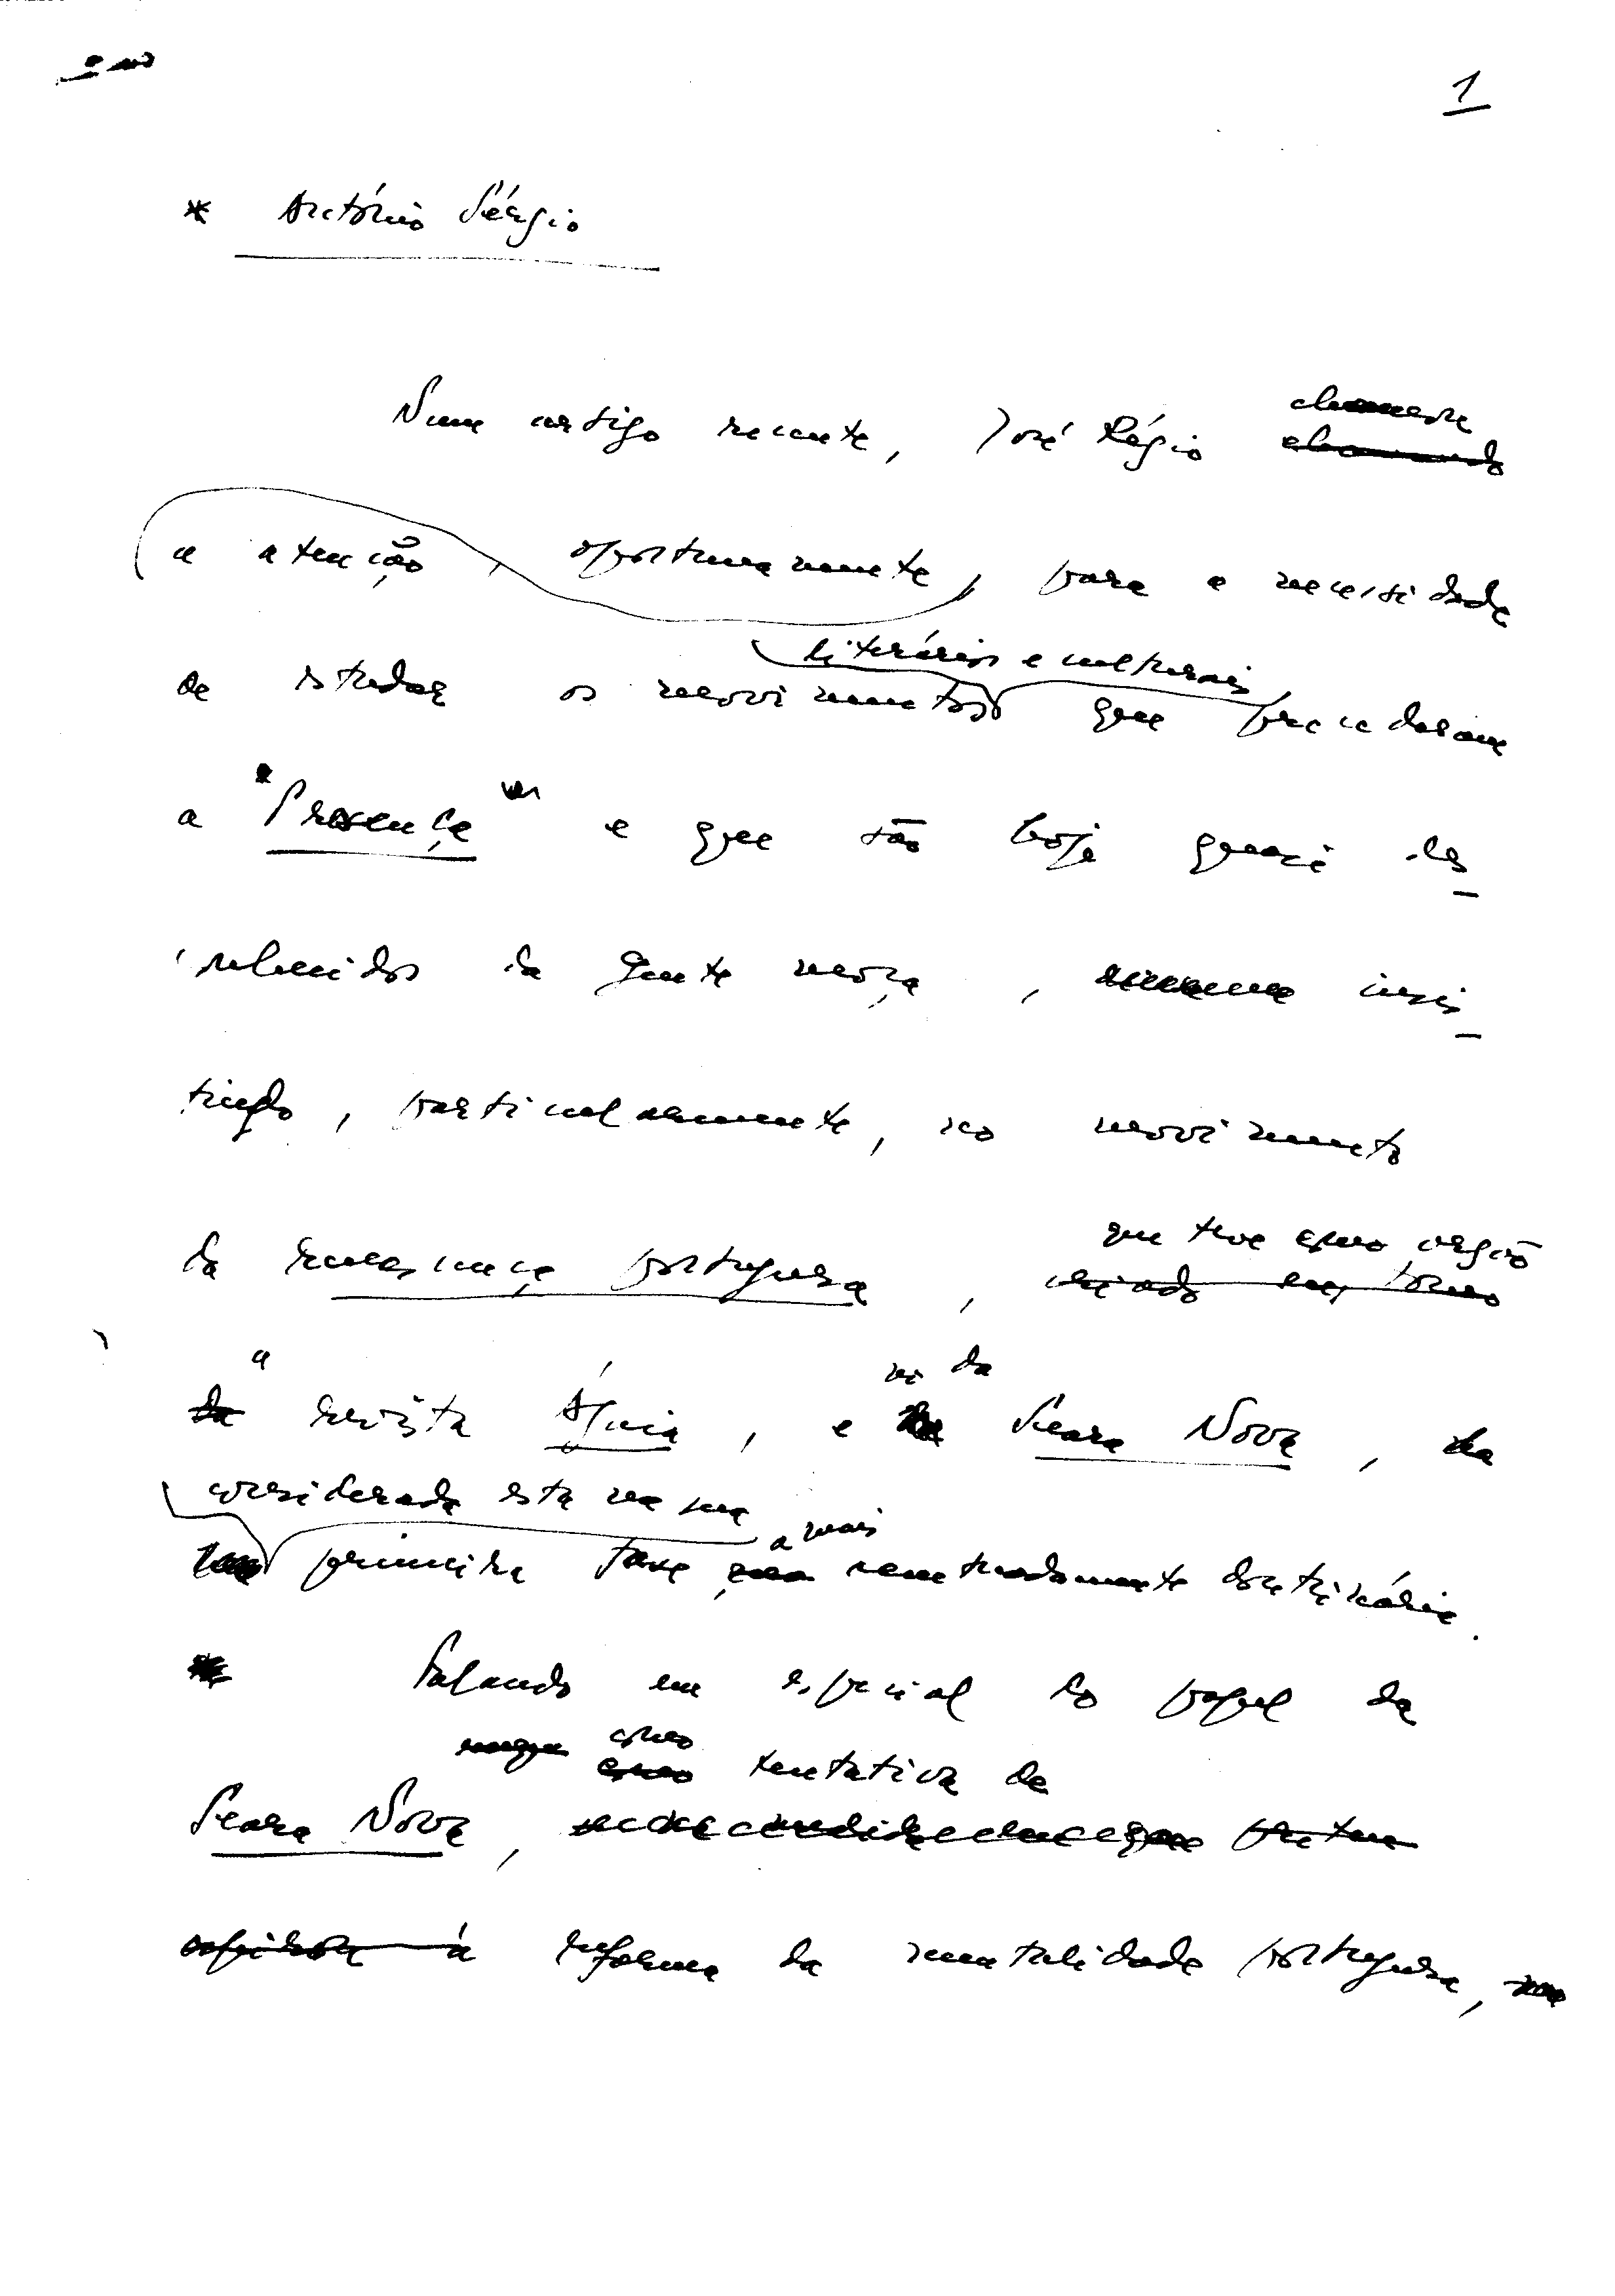 1
* António Sérgio
Num artigo recente, José Régio chamava
a atenção, oportunamente, para a necessidade
literários e culturais
de estudar os movimentos que precederam
a "Presença" e que são hoje quase des-
conhecidos da gente moça, insis-
tindo, particularmente, no movimento
que teve como orgão
da renascença portuguesa, criado em torno
a no da
da revista Águia, e Seara Nova, na
considerada esta na sua
primeira fase a mais acentuadamente doutrinária.
Falando em especial do papel da
como tentativa de
Seara Nova,
à reforma da mentalidade portuguesa,